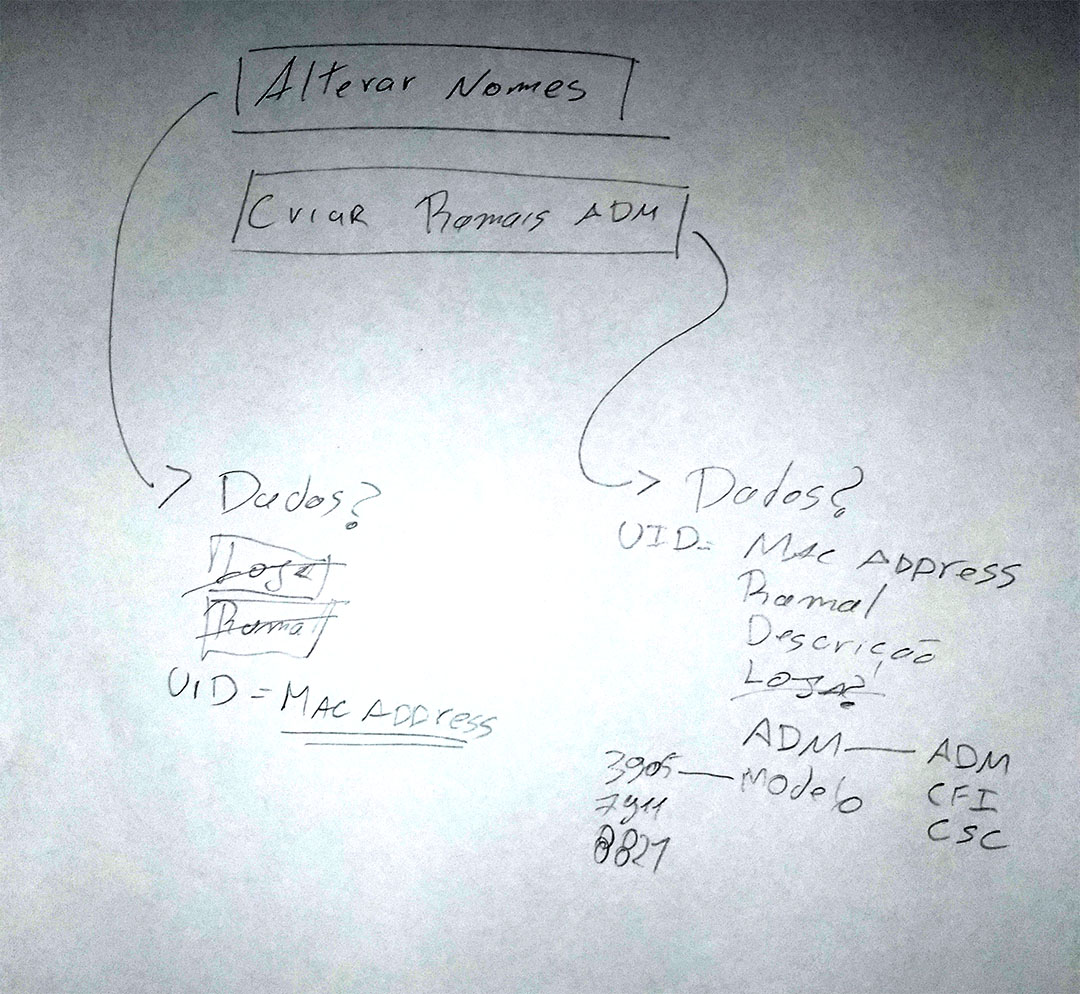 Alterar Nomes
Criar Ramais ADM
> Dados?
Loja
Ramal
UID = MAC ADDress
> Dados?
UID = MAC ADDress
Ramal
Descrição
Loja?
ADM — ADM
3905 — Modelo CFI
7911 CSC
8821